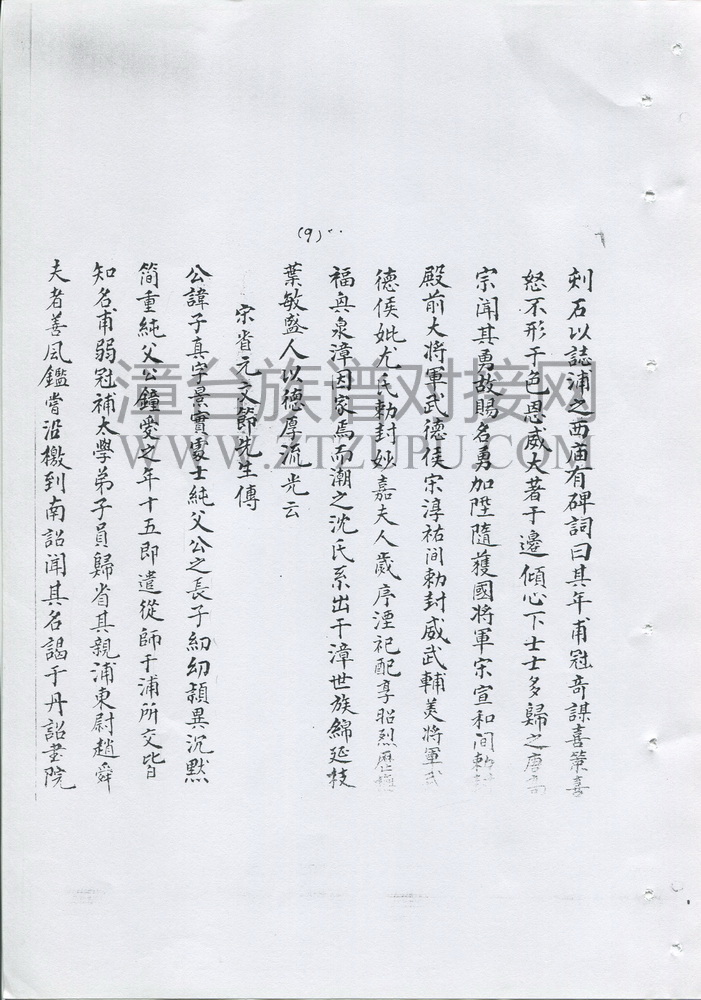 (9)
剡石以誌浦之西庙有碑詞曰其年甫冠奇謀喜策喜
怒不形于色恩威大著于邊傾心下士士多歸之唐高
宗闻其勇敢賜名勇加陞隨護國將軍宋宣和间勅封
殿前大將軍武德侯宋淳祐间勅封威武輔美將軍武
德侯妣尤氏勅封妙嘉夫人歲序湮祀配享昭烈
福興泉漳因家焉而潮之沈氏系出于漳世族綿延枝
葉敏盛人以德厚流光云
宋省元文節先生傳
公諱子真字景實處士純父公之長子幼幼頴異沉默
简重純父公鐘愛之年十五即遣從師于浦所交皆
知名甫弱冠補大學弟子員歸省其親浦東尉趙舜
夫者善风鑑嘗沿檄到南詔闻其名謁于丹詔書院
漳台族谱对接网
WWW.ZTZUPU.COM